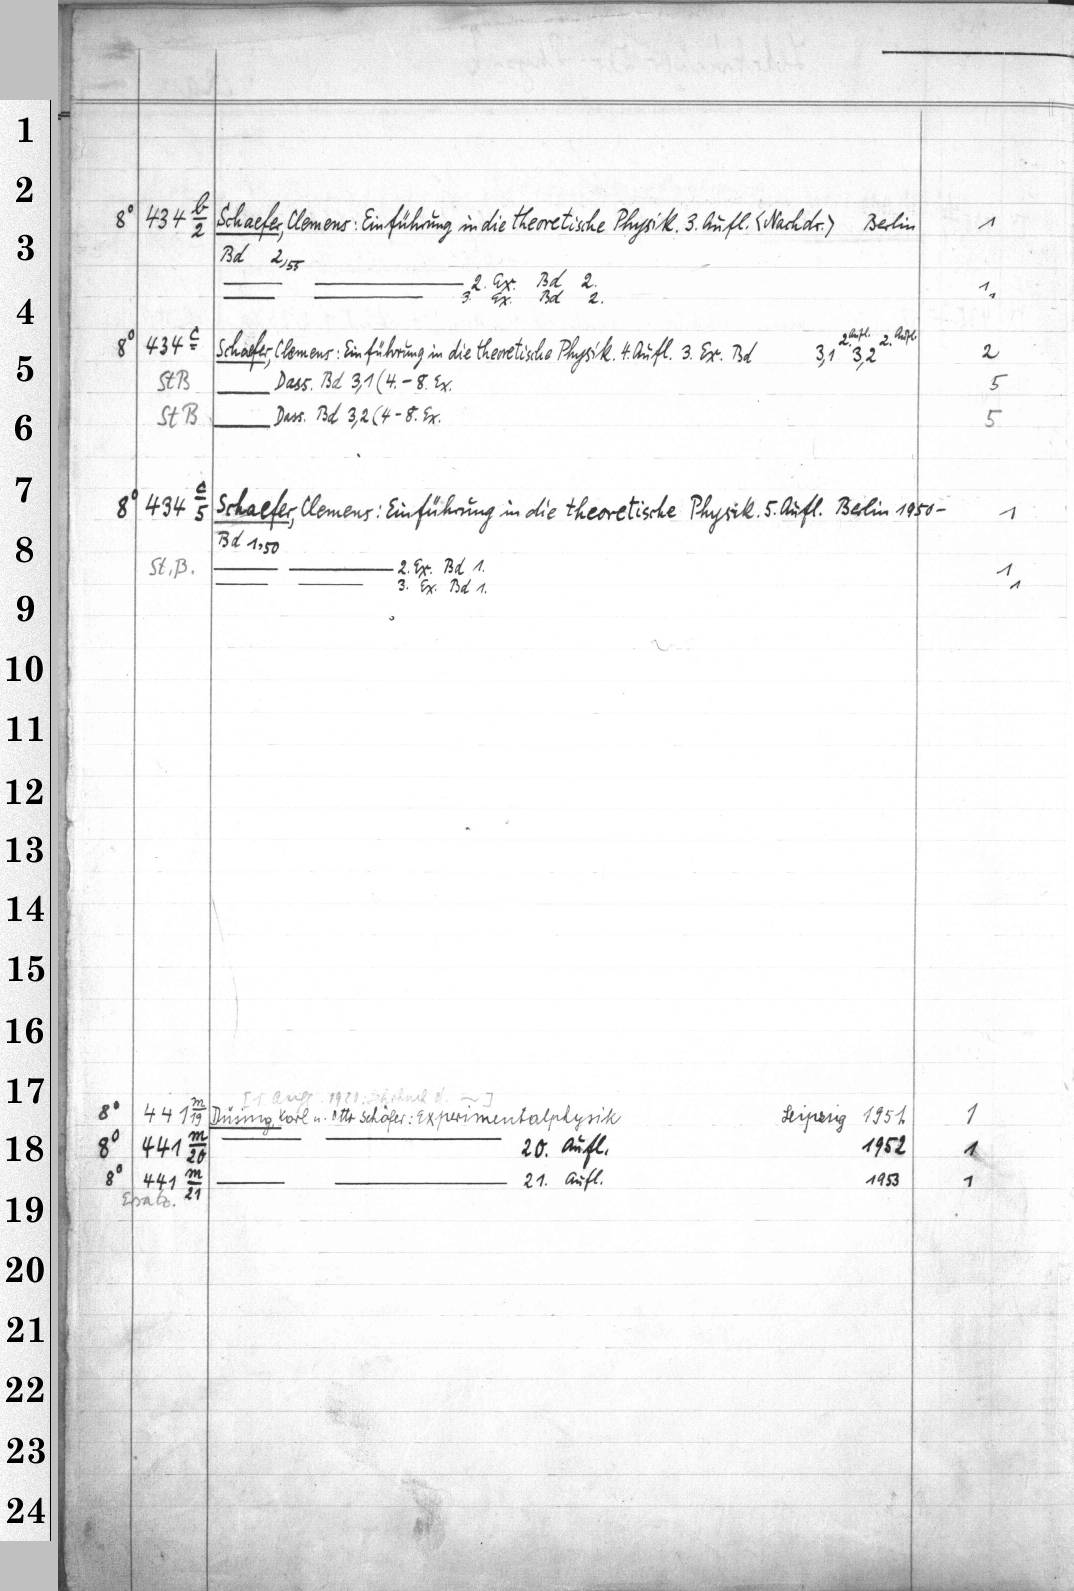 1
2
8° 434 b/2 Schaefer, Clemens: Einführung in die theoretische Physik. 3. Aufl. <Nachdr.> Berlin 1
3
Bd 2,55
2. Ex. Bd 2. 1
3. Ex. Bd 2. 1
4
8° 434 c Schaefer, Clemens: Einführung in die theoretische Physik. 4. Aufl. 3. Ex. Bd 3,1 2. Aufl. 3,2 2. Aufl. 2
5
StB Dass. Bd 3,1 (4.-8. Ex. 5
StB Dass. Bd 3,2 (4-8. Ex. 5
6
7
8° 434 c/5 Schaefer, Clemens: Einführung in die theoretische Physik. 5. Aufl. Berlin 1950- 1
8
Bd 1,50
St.B. 2. Ex. Bd 1. 1
3. Ex. Bd 1. 1
9
10
11
12
13
14
15
16
17
8° 441 m/19 Düsing, Karl u. Otto Schäfer: Experimentalphysik Leipzig 1951 1
18
8° 441 m/20 20. Aufl. 1952 1
8° 441 m/21 21. Aufl. 1953 1
Ersatz.
19
20
21
22
23
24